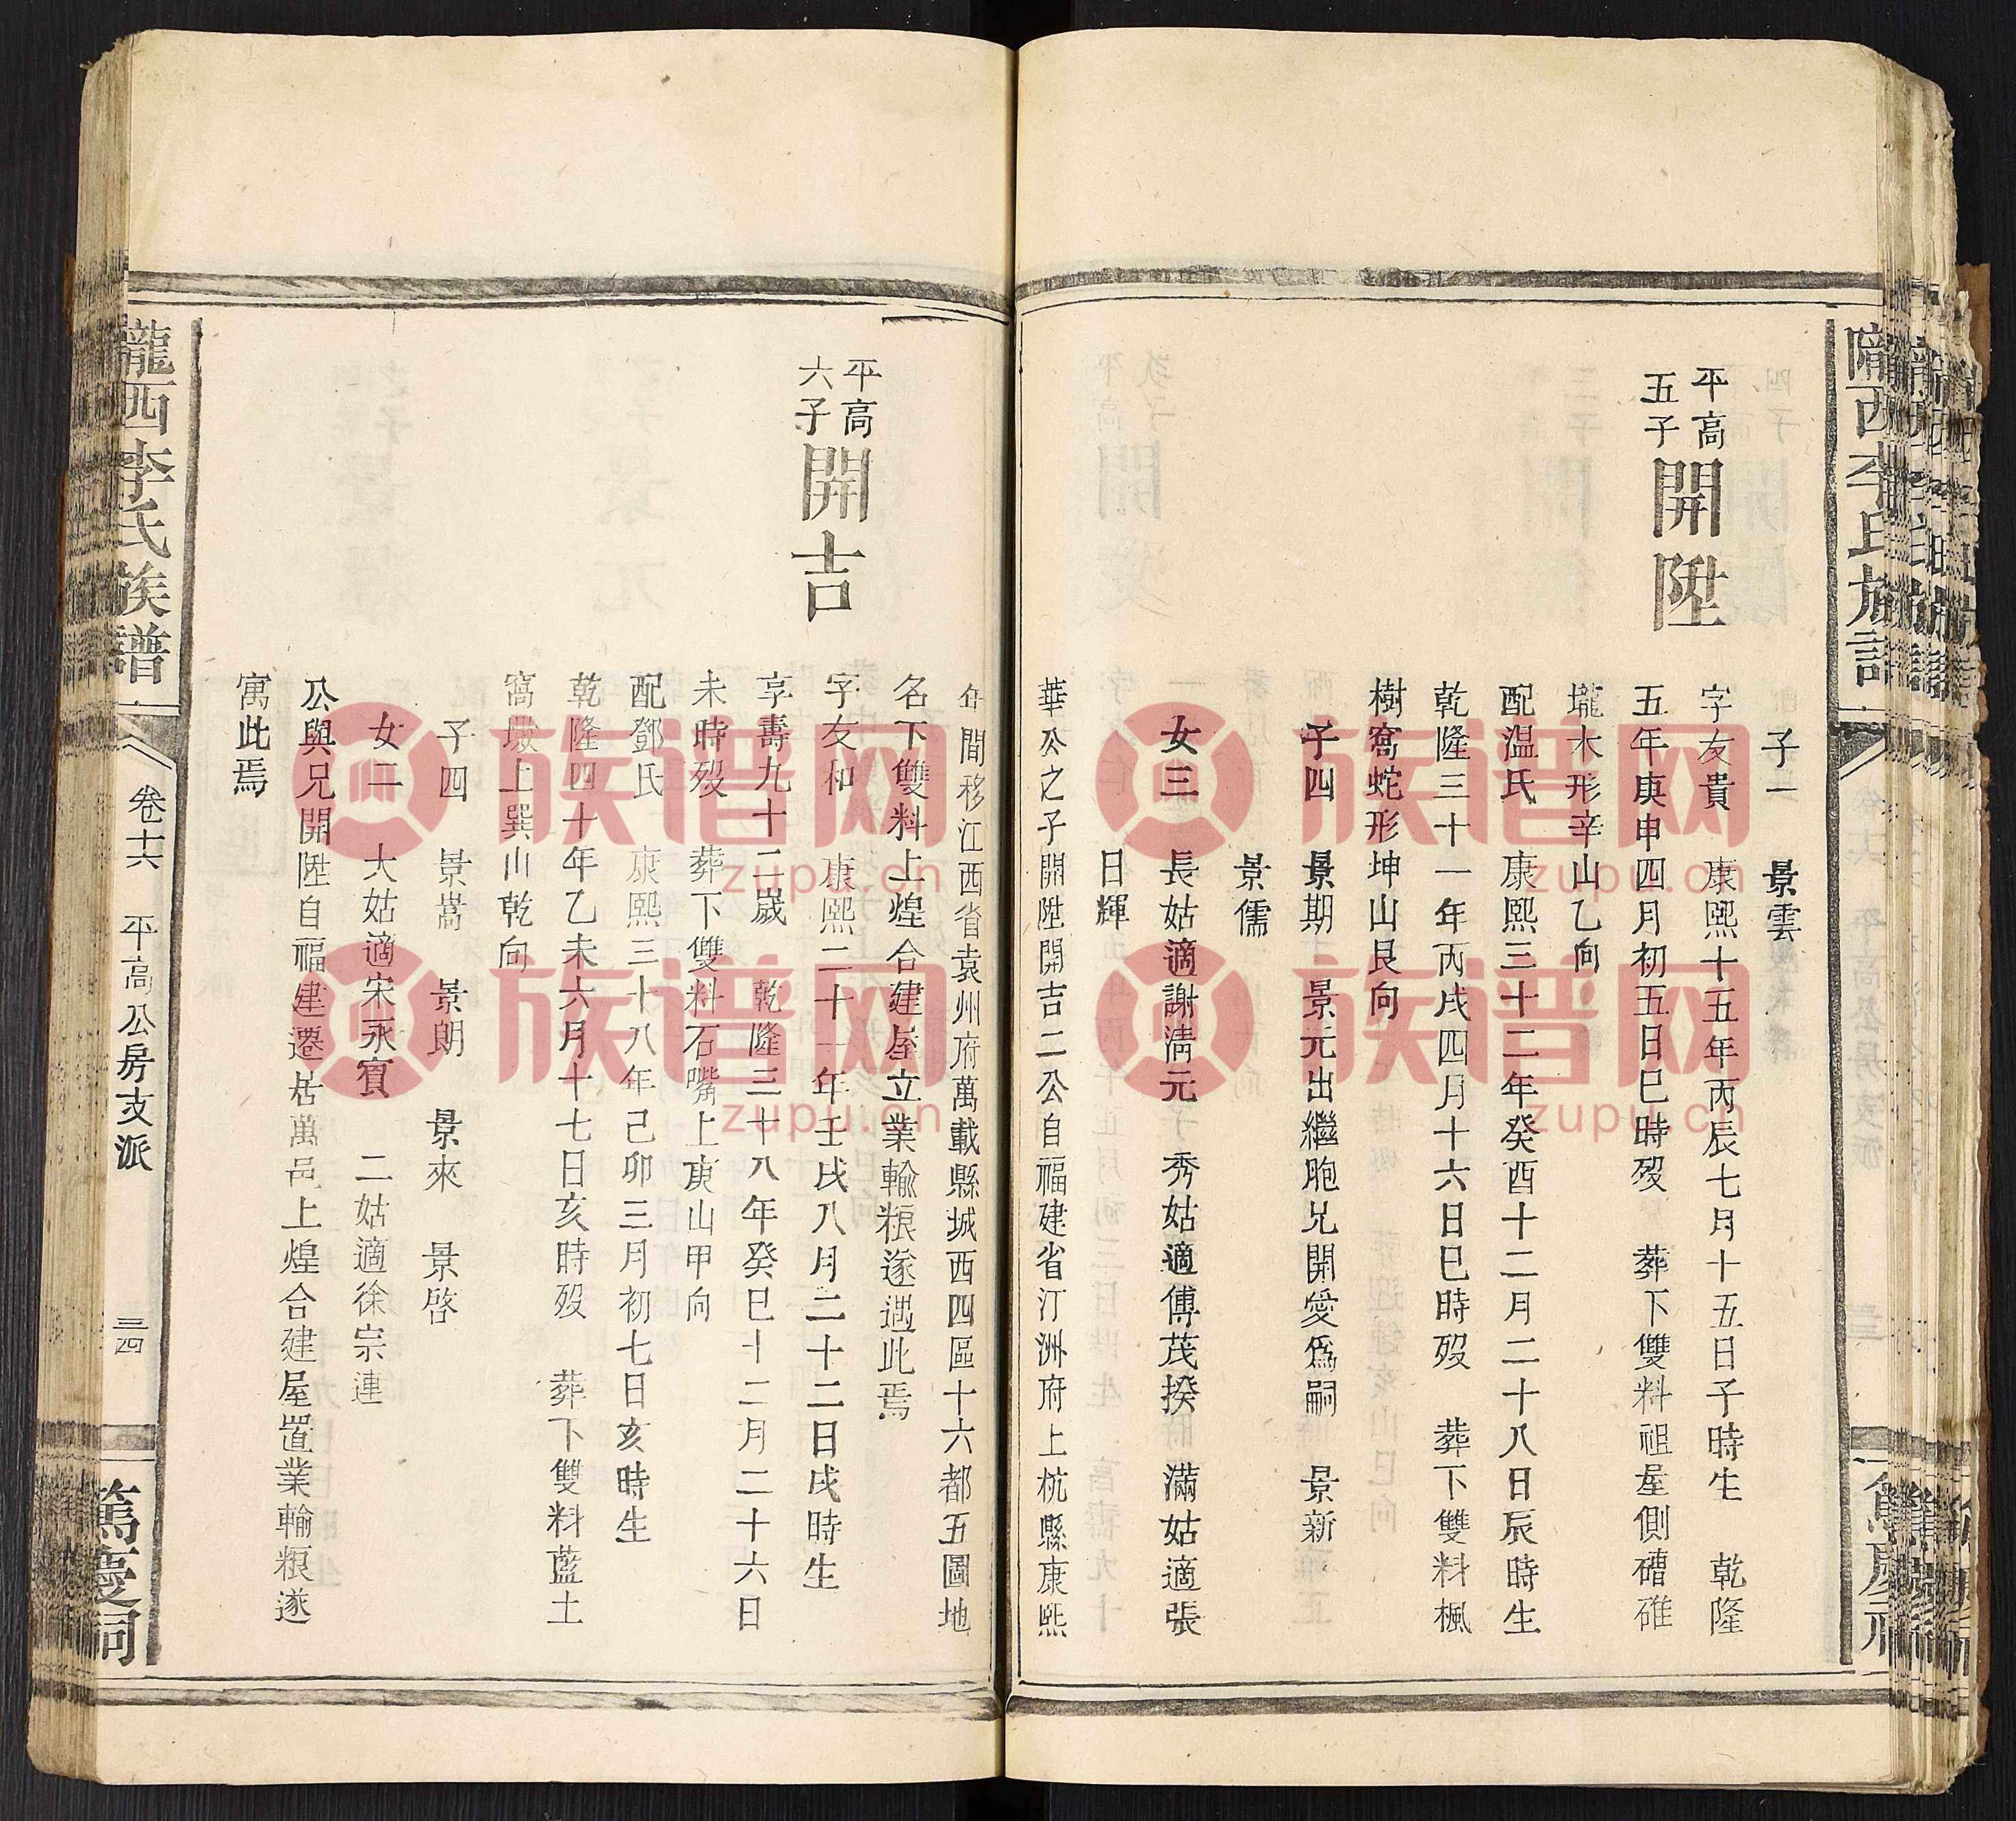 隴西李氏族譜
子一　景雲
平高
五子
開陞
字友貴　康熙十五年丙辰七月十五日子時生　乾隆
五年庚申四月初五日巳時歿　葬下雙料祖屋側碏碓
壠木形辛山乙向
配温氏　康熙三十二年癸酉十二月二十八日辰時生
乾隆三十一年丙戌四月十六日巳時歿　葬下雙料楓
樹窩蛇形坤山艮向
子四　景期　景元出繼胞兄開愛爲嗣　景新
景儒
女三　長姑適謝淸元　秀姑適傅茂揆　滿姑適張
日輝
華公之子開陞開吉二公自福建省汀洲府上杭縣康熙
年間移江西省袁州府萬載縣城西四區十六都五圖地
名下雙料上煌合建屋立業輸粮遂遇此焉
平高
六子
開吉
字友和　康熙二十一年壬戌八月二十二日戌時生
享壽九十二歲　乾隆三十八年癸巳十二月二十六日
未時歿　葬下雙料石嘴上庚山甲向
配鄧氏　康熙三十八年己卯三月初七日亥時生
乾隆四十年乙未六月十七日亥時歿　葬下雙料藍土
窩墩上巽山乾向
子四　景嵩　景朗　景來　景啓
女二　大姑適宋永寳　二姑適徐宗連
公與兄開陞自福建遷居萬邑上煌合建屋置業輸粮遂
寓此焉
隴西李氏族譜
卷十六　平高公房支派
三四
篤慶祠
族谱网
zupu.cn
族谱网
zupu.cn
族谱网
zupu.cn
族谱网
zupu.cn